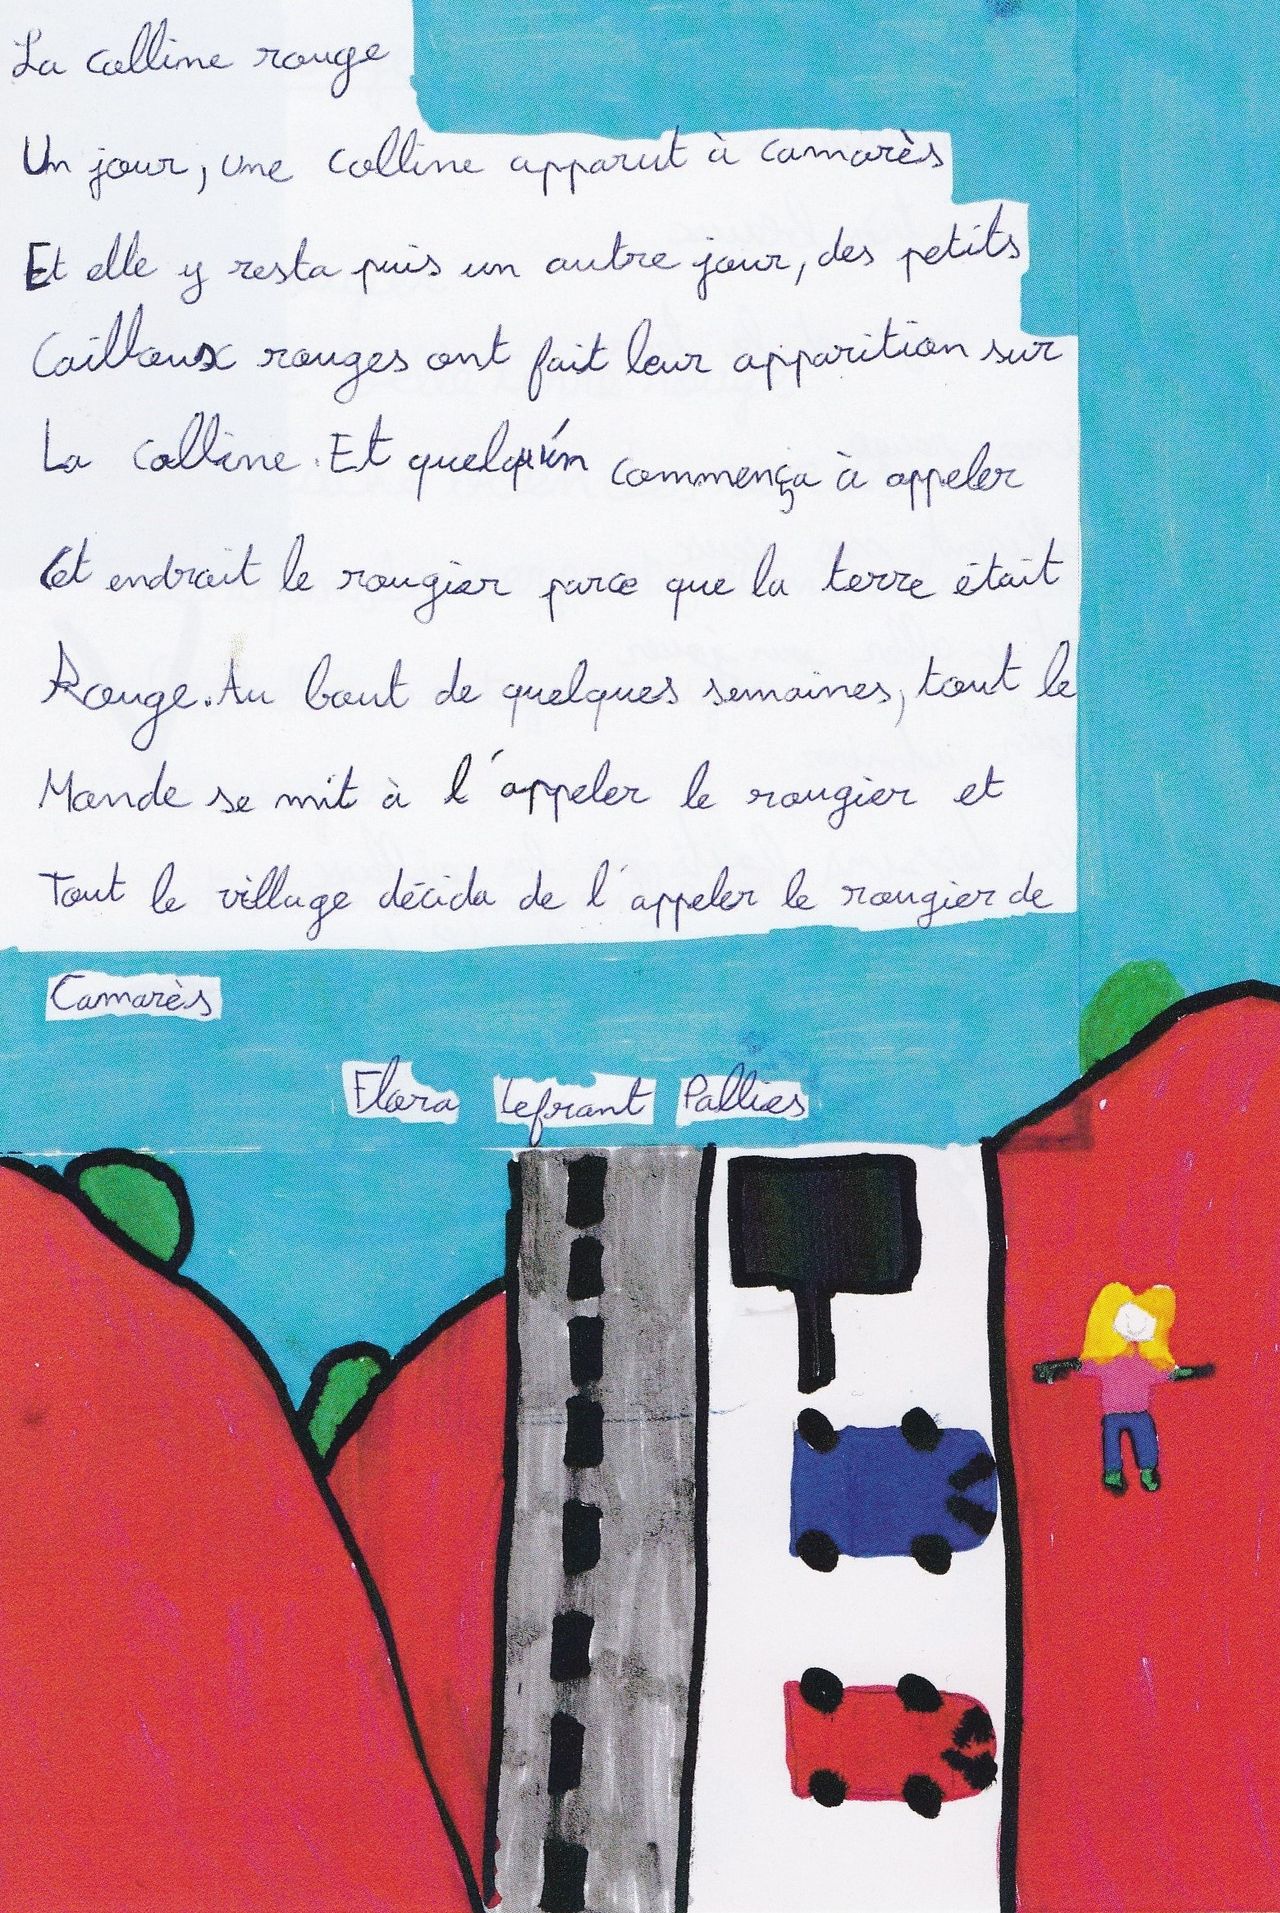 La colline rouge
Un jour, une colline apparut à Camarès
Et elle y resta puis un autre jour, des petits
Cailloux rouges ont fait leur apparition sur
La colline. Et quelqu'un commença à appeler
Cet endroit le rougier parce que la terre était
Rouge. Au bout de quelques semaines, tout le
Monde se mit à l'appeler le rougier et
Tout le village décida de l'appeler le rougier de
Camarès
Flora Lefrant Pallies